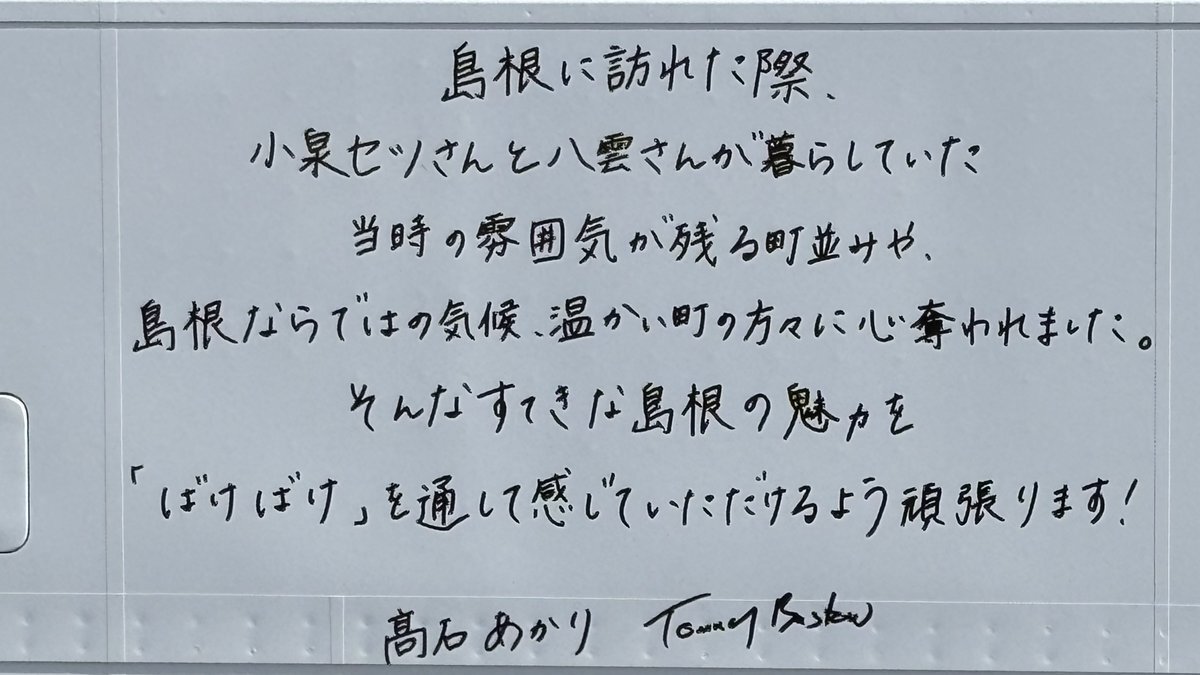 島根に訪れた際、
小泉セツさんと八雲さんが暮らしていた
当時の雰囲気が残る町並みや、
島根ならではの気候、温かい町の方々に心奪われました。
そんなすてきな島根の魅力を
「ばけばけ」を通して感じていただけるよう頑張ります!
髙石あかり Tommy Bastow